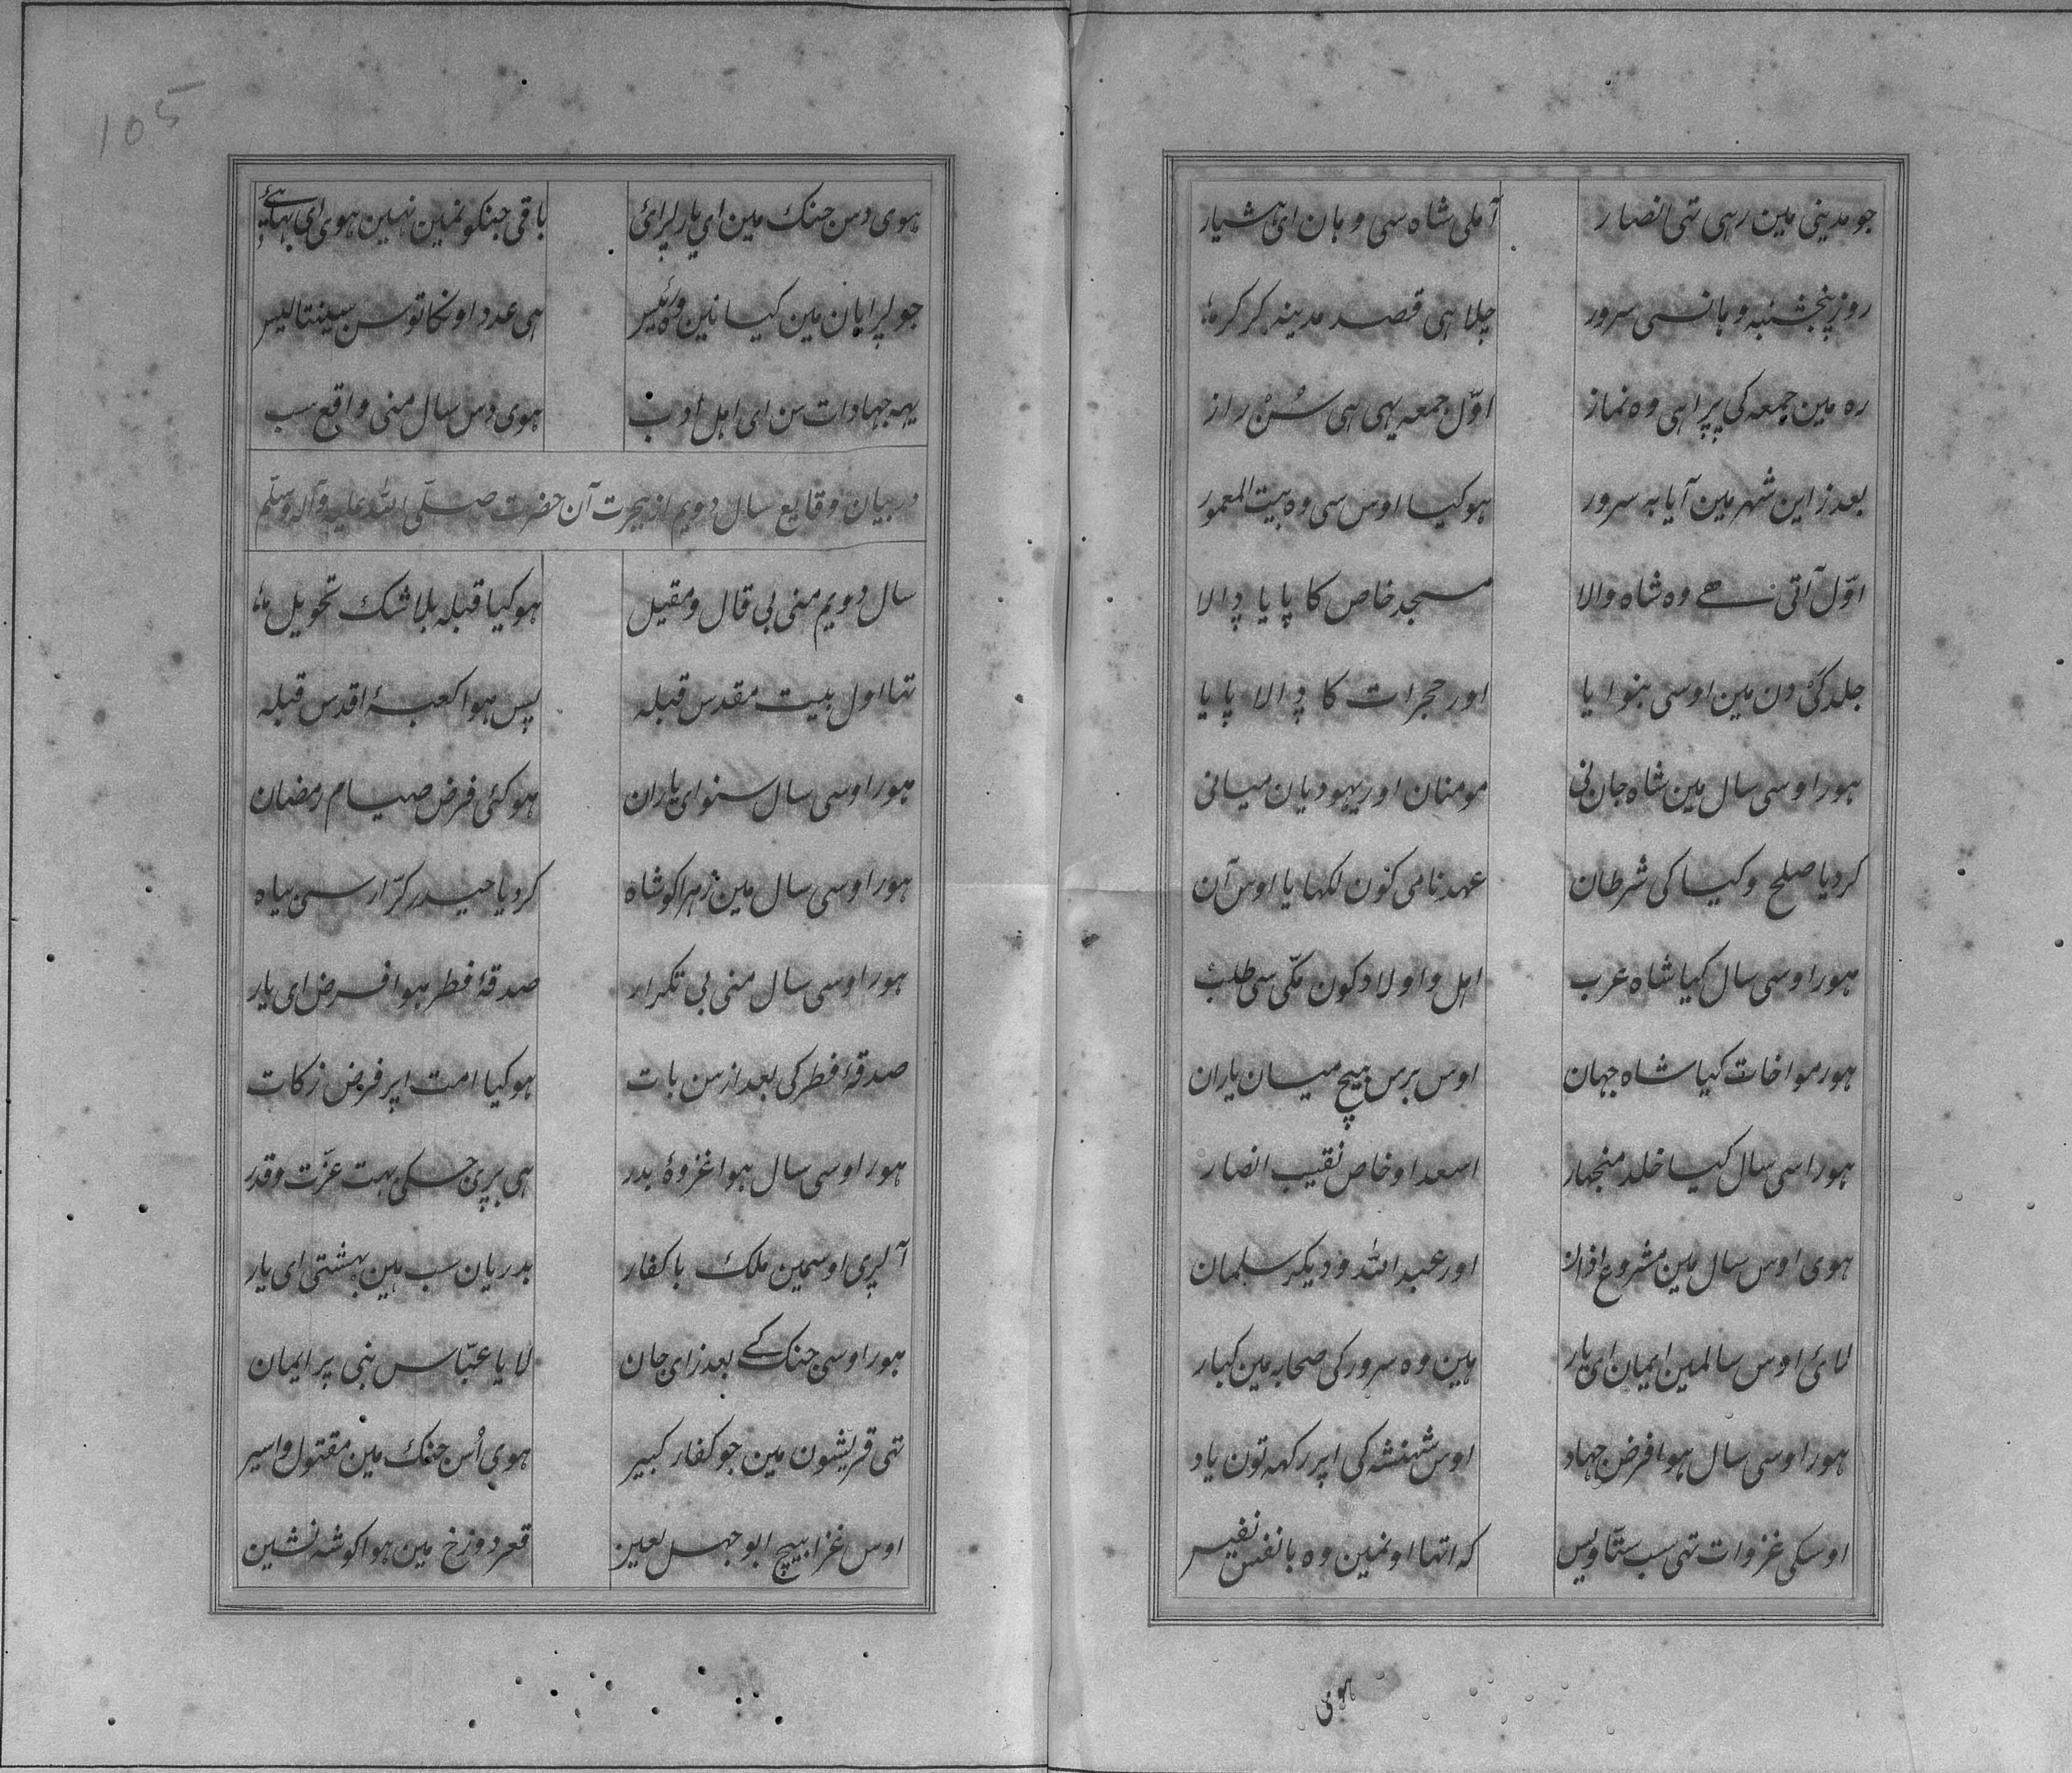 جو مدینی مین رہی تہی انصار
آملی شاہ سی وہان ای ہشیار
روز پنجشنبہ وہانسی سرور
چلا ہی قصد مدینہ کر کر
رہ مین جمعہ کی پڑا ہی وہ نماز
اوّل جمعہ یہی ہی سُنْ راز
بعد زاین شہر مین آیا بہ سرور
ہو کیا اوس سی وہ بیت المعمور
اوّل آتی وہ شاہ والا
مسجد خاص کا پایا ڈالا
جلد کئی دن مین اوسی بنوایا
اور حجرات کا ڈالا پایا
ہور اوسی سال مین شاہ جانی
مومنان اور یہودیان میانی
کردیا صلح و کیا کی شرطان
عہدنامی کون لکھایا اوس آن
ہور اوسی سال کیا شاہ عرب
اہل و اولاد کون مکّی سی طلب
ہور مواخات کیا شاہ جہان
اوس برس بیچ میان یاران
ہور اسی سال کیا خلد منجہار
اسعد او خاص نقیب انصار
ہوی اوس سال مین مشروع اذان
اور عبد اللہ و دیکر سلمان
لائی اوس سالمین ایمان ای یار
ہین وہ سرور کی صحابہ مین کبار
ہور اوسی سال ہوا فرض جہاد
اوس شہنشہ کی اپر رکہہ تون یاد
اوسکی غزوات تہی سب ستاویس
کہ اتہا اونمین وہ بانفس نفیس
ہوی
105
ہوی دس جنک مین ای یار لڑائی
باقی جنکونمین نہین ہوی ای بہائی
جو لڑایان مین کیا نین وہ رئیس
ہی عدد اونکا تو سن سینتالیس
یہہ جہادات سن ای اہل ادب
ہوی دس سال منی واقع سب
در بیان وقایع سال دویم از ہجرت آن حضرت صلّی اللہ علیہ وآلہ وسلّم
سال دویم منی بی قال و مقیل
ہو کیا قبلہ بلا شک تحویل
تہا اول بیت مقدس قبلہ
پس ہوا کعبۂ اقدس قبلہ
ہور اوسی سال سنو ای یاران
ہو کئی فرض صیام رمضان
ہور اوسی سال مین زہرا کو شاہ
کردیا حیدر کرّار سی بیاہ
ہور اوسی سال منی بی تکرار
صدقۂ فطر ہوا فرض ای یار
صدقۂ فطر کی بعد از سن بات
ہو کیا امت اپر فرض زکات
ہور اوسی سال ہوا غزوۂ بدر
ہی بڑی جسکی بہت عزّت و قدر
آ لڑی اوسمین ملک با کفار
بدریان سب ہین بہشتی ای یار
ہور اوسی جنک کے بعد ز ای جان
لایا عبّاس نبی پر ایمان
تہی قریشون مین جو کفار کبیر
ہوی اُس جنک مین مقتول و اسیر
اوس غزا بیچ ابو جہل لعین
قعر دوزخ مین ہوا کوشہ نشین